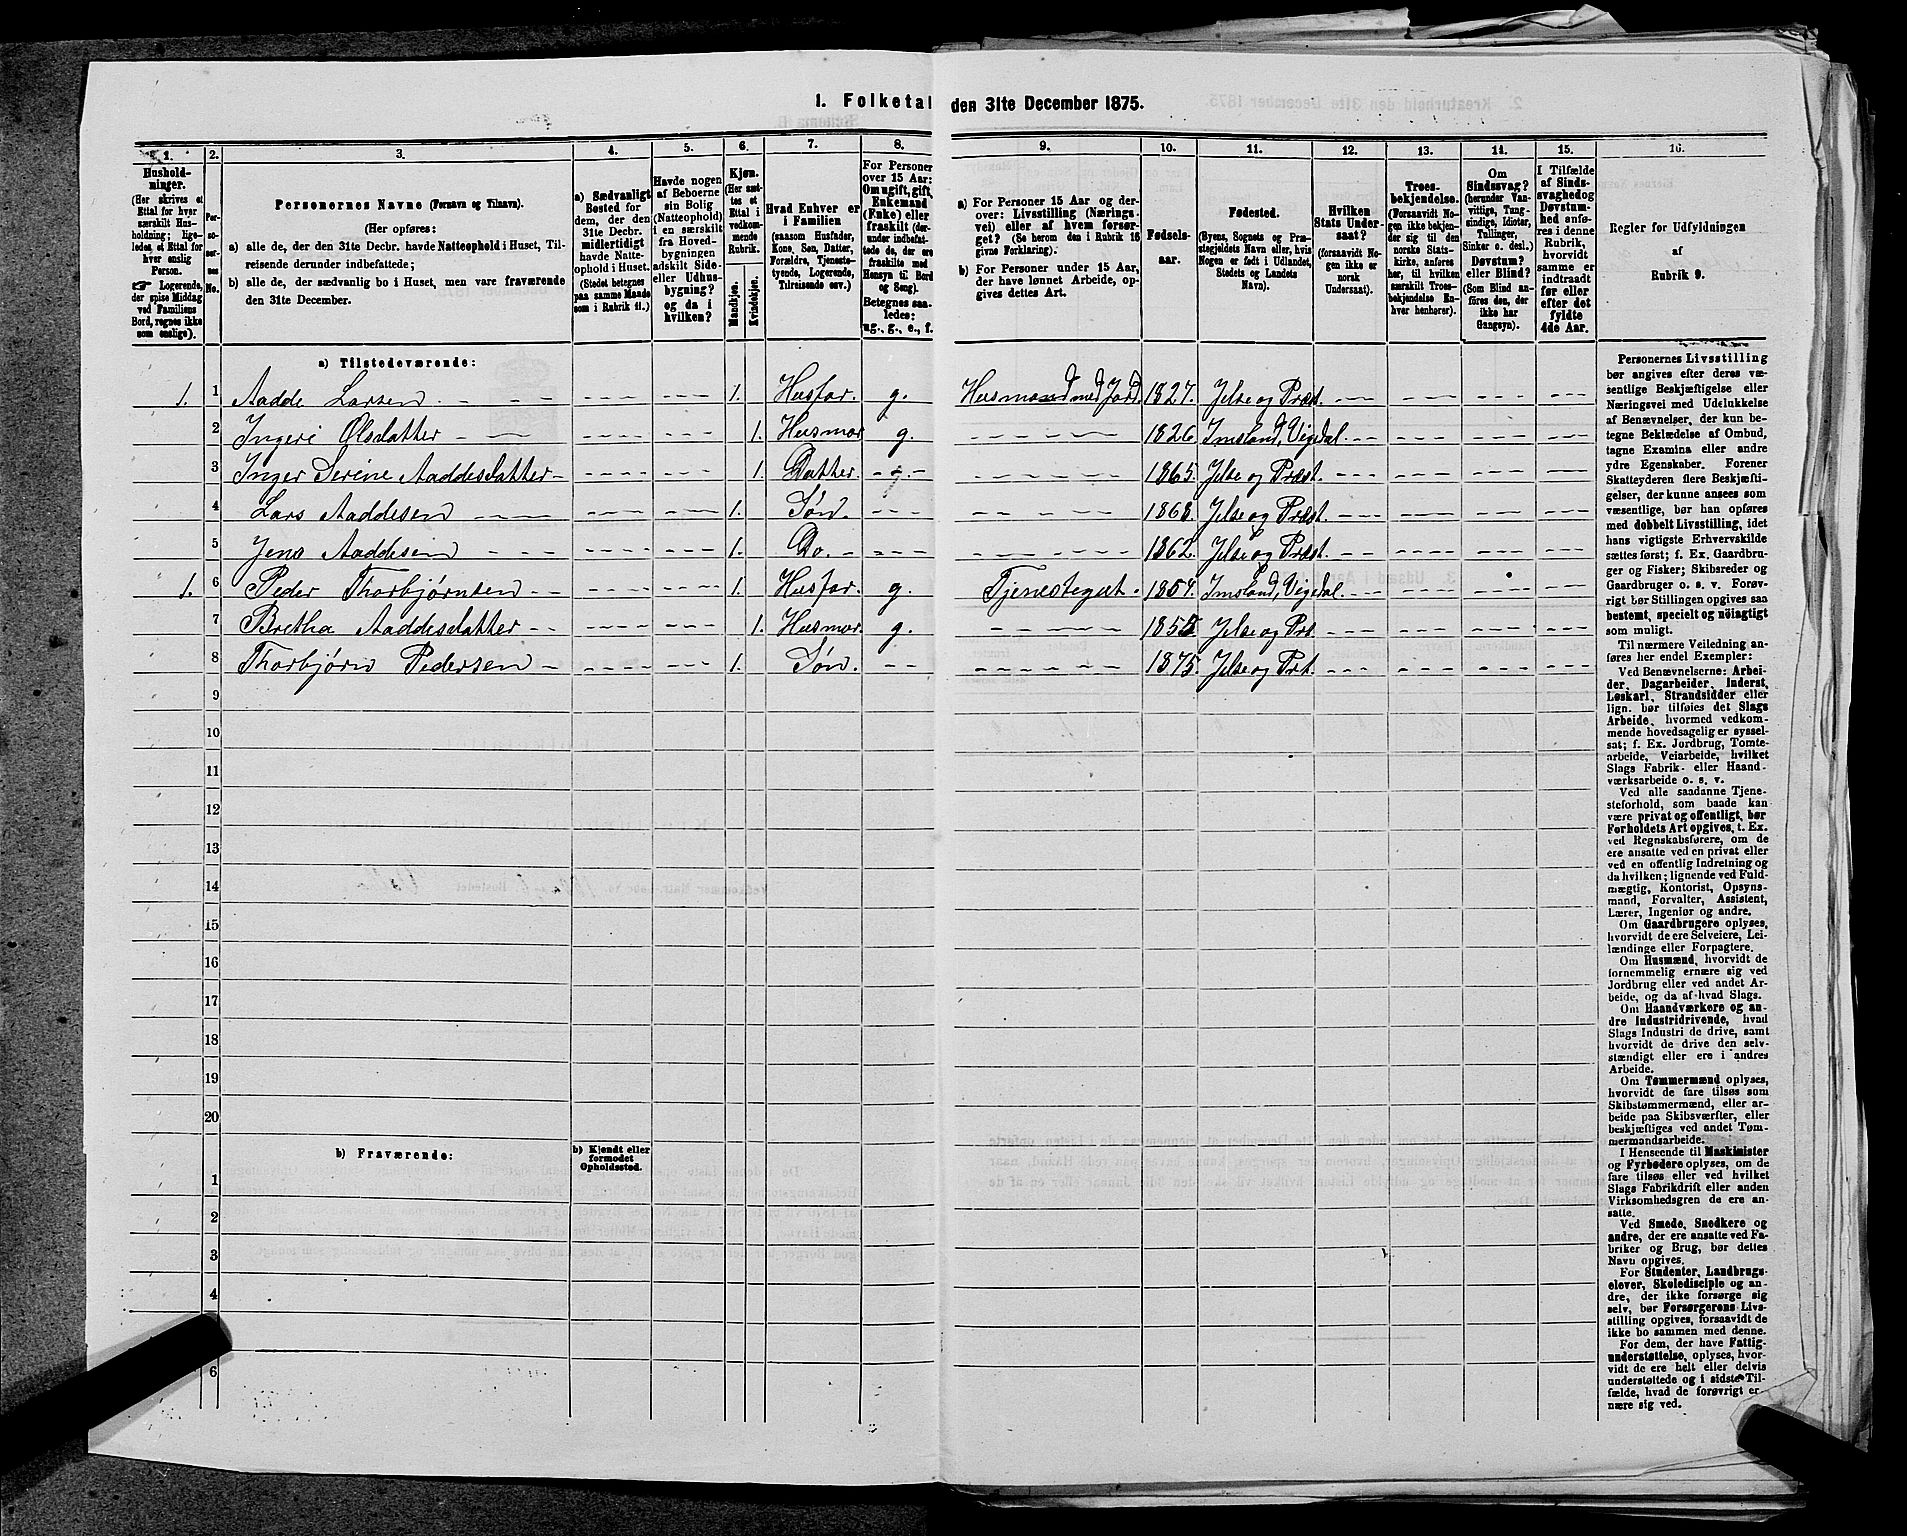 1. Folketal den 31te December 1875.
1.
Husholdninger.
(Her skrives et Ettal for hver særskilt Husholdning; ligeledes et Ettal for hver enslig Person.
☞ Logerende, der spise Middag ved Familiens Bord, regnes ikke som enslige).
2.
Personernes No.
3.
Personernes Navne (Fornavn og Tilnavn).
(Her opføres:
a) alle de, der den 31te Decbr. havde Natteophold i Huset, Tilreisende derunder indbefattede;
b) alle de, der sædvanlig bo i Huset, men vare fraværende den 31te December.
4.
a) Sædvanligt Bosted for dem, der den 31te Decbr. midlertidigt havde Natteophold i Huset. (Stedet betegnes paa samme Maade som i Rubrik 11.)
5.
Havde nogen af Beboerne sin Bolig (Natteophold) i en særskilt fra Hovedbygningen adskilt Side- eller Udhusbygning? og da i hvilken?
6.
Kjøn.
(Her sættes et Ettal i vedkommende Rubrik.
Mandkjøn.
Kvindekjøn.
7.
Hvad Enhver er i Familien
(saasom Husfader, Kone, Søn, Datter, Forældre, Tjenestetyende, Logerende, Tilreisende osv.)
8.
For Personer over 15 Aar: Om ugift, gift, Enkemand (Enke) eller fraskilt (derunder indbefattede de, der ere fraskilte med Hensyn til Bord og Seng).
Betegnes saaledes: ug., g., e., f.
9.
a) For Personer 15 Aar og derover: Livsstilling (Næringsvei) eller af hvem forsørget? (Se herom den i Rubrik 16 givne Forklaring).
b) For Personer under 15 Aar, der have lønnet Arbeide, opgives dettes Art.
10.
Fødselsaar.
11.
Fødested.
(Byens, Sognets og Præstegjeldets Navn eller, hvis Nogen er født i Udlandet, Stedets og Landets Navn).
12.
Hvilken Stats Undersaat?
(forsaavidt Nogen ikke er norsk Undersaat).
13.
Troesbekjendelse.
(Forsaavidt Nogen ikke bekjender sig til den norske Statskirke, anføres her, til hvilken særskilt Troesbekjendelse Enhver henhører).
14.
Om Sindssvag?
(herunder Vanvittige, Tungsindige, Idioter, Tullinger, Sinker o. desl.)
Døvstum? eller Blind?
(Som Blind anføres den, der ikke har Gangsyn).
15.
I Tilfælde af Sindssvaghed og Døvstumhed anføres i denne Rubrik, hvorvidt samme er indtraadt før eller efter det fyldte 4de Aar.
16.
Regler for Udfyldningen
af
Rubrik 9.
a) Tilstedeværende:
1. 1 Aadde Larsen 1. Husfar. g. Husmand med Jord. 1827. Jelse og Præst.
2 Ingeri Olsdatter 1. Husmor g. 1826 Imsland, Vigedal.
3 Inger Serine Aaddesdatter 1. Datter. 1865. Jelse og Præst.
4 Lars Aaddesen 1. Søn. 1868. Jelse og Præst.
5 Jens Aaddesen 1. Do. 1862. Jelse og Præst.
1. 6 Peder Thorbjørnsen 1. Husfar. g. Tjenestegut. 1854. Imsland, Vigedal.
7 Bretha Aaddesdatter 1. Husmor. g. 1855 Jelse og Prt.
8 Thorbjørn Pedersen 1. Søn. 1875. Jelse og Prt.
9
10
11
12
13
14
15
16
17
18
19
20
b) Fraværende:
b) Kjendt eller formodet Opholdssted.
1
2
3
4
6
Personernes Livsstilling
bør angives efter deres væ-
sentlige Beskjæftigelse eller
Næringsvei med Udelukkelse
af Benævnelser, der kun be-
tegne Beklædelse af Ombud,
tagne Examina eller andre
ydre Egenskaber. Forener
Skatteyderen flere Beskjæfti-
gelser, der kunne ansees som
væsentlige, bør han opføres
med dobbelt Livsstilling, idet
hans vigtigste Erhvervskilde
sættes først; f. Ex. Gaardbru-
ger og Fisker; Skibsreder og
Gaardbruger o. s. v. Forøv-
rigt bør Stillingen opgives saa
bestemt, specielt og nøiagtigt
som muligt.
Til nærmere Veiledning an-
føres her endel Exempler:
Ved Benævnelserne: Arbei-
der, Dagarbeider, Inderst,
Løskarl, Strandsidder eller
lign. bør tilføies det Slags
Arbeide, hvormed vedkom-
mende hovedsagelig er syssel-
sat; f. Ex. Jordbrug, Tomte-
arbeide, Veiarbeide, hvilket
Slags Fabrik- eller Haand-
værksarbeide o. s. v.
Ved alle saadanne Tjene-
steforhold, som baade kan
være privat og offentligt, bør
Forholdets Art opgives, t. Ex.
ved Regnskabsførere, om de
ere ansatte ved en privat eller
ved en offentlig Indretning og
da hvilken; lignende ved Fuld-
mægtig, Kontorist, Opsyns-
mand, Forvalter, Assistent,
Lærer, Ingeniør og andre.
Om Gaardbrugere oplyses,
hvorvidt de ere Selveiere, Lei-
lændinge eller Forpagtere.
Om Husmænd, hvorvidt de
fornemmelig ernære sig ved
Jordbrug eller ved andet Ar-
beide, og da af hvad Slags.
Om Haandværkere og an-
dre Industridrivende, hvad
Slags Industri de drive, samt
hvorvidt de drive den selv-
stændigt eller ere i andres
Arbeide.
Om Tømmermænd oplyses,
hvorvidt de fare tilsøs som
Skibstømmermænd, eller ar-
beide paa Skibsværfter, eller
beskjæftiges ved andet Tøm-
mermandsarbeide.
I Henseende til Maskinister
og Fyrbødere oplyses, om de
fare tilsøs eller ved hvilket
Slags Fabrikdrift eller anden
Virksomhedsgren de ere an-
satte.
Ved Smede, Snedkere og
andre, der ere ansatte ved Fa-
briker og Brug, bør dettes
Navn opgives.
For Studenter, Landbrugs-
elever, Skoledisciple og an-
dre, der ikke forsørge sig
selv, bør Forsørgerens Livs-
stilling opgives, forsaavidt de
ikke bo sammen med denne.
For dem, der have Fattig-
understøttelse, oplyses, hvor-
vidt de ere helt eller delvis
understøttede og i sidste Til-
fælde, hvad de forøvrigt er-
nære sig ved.